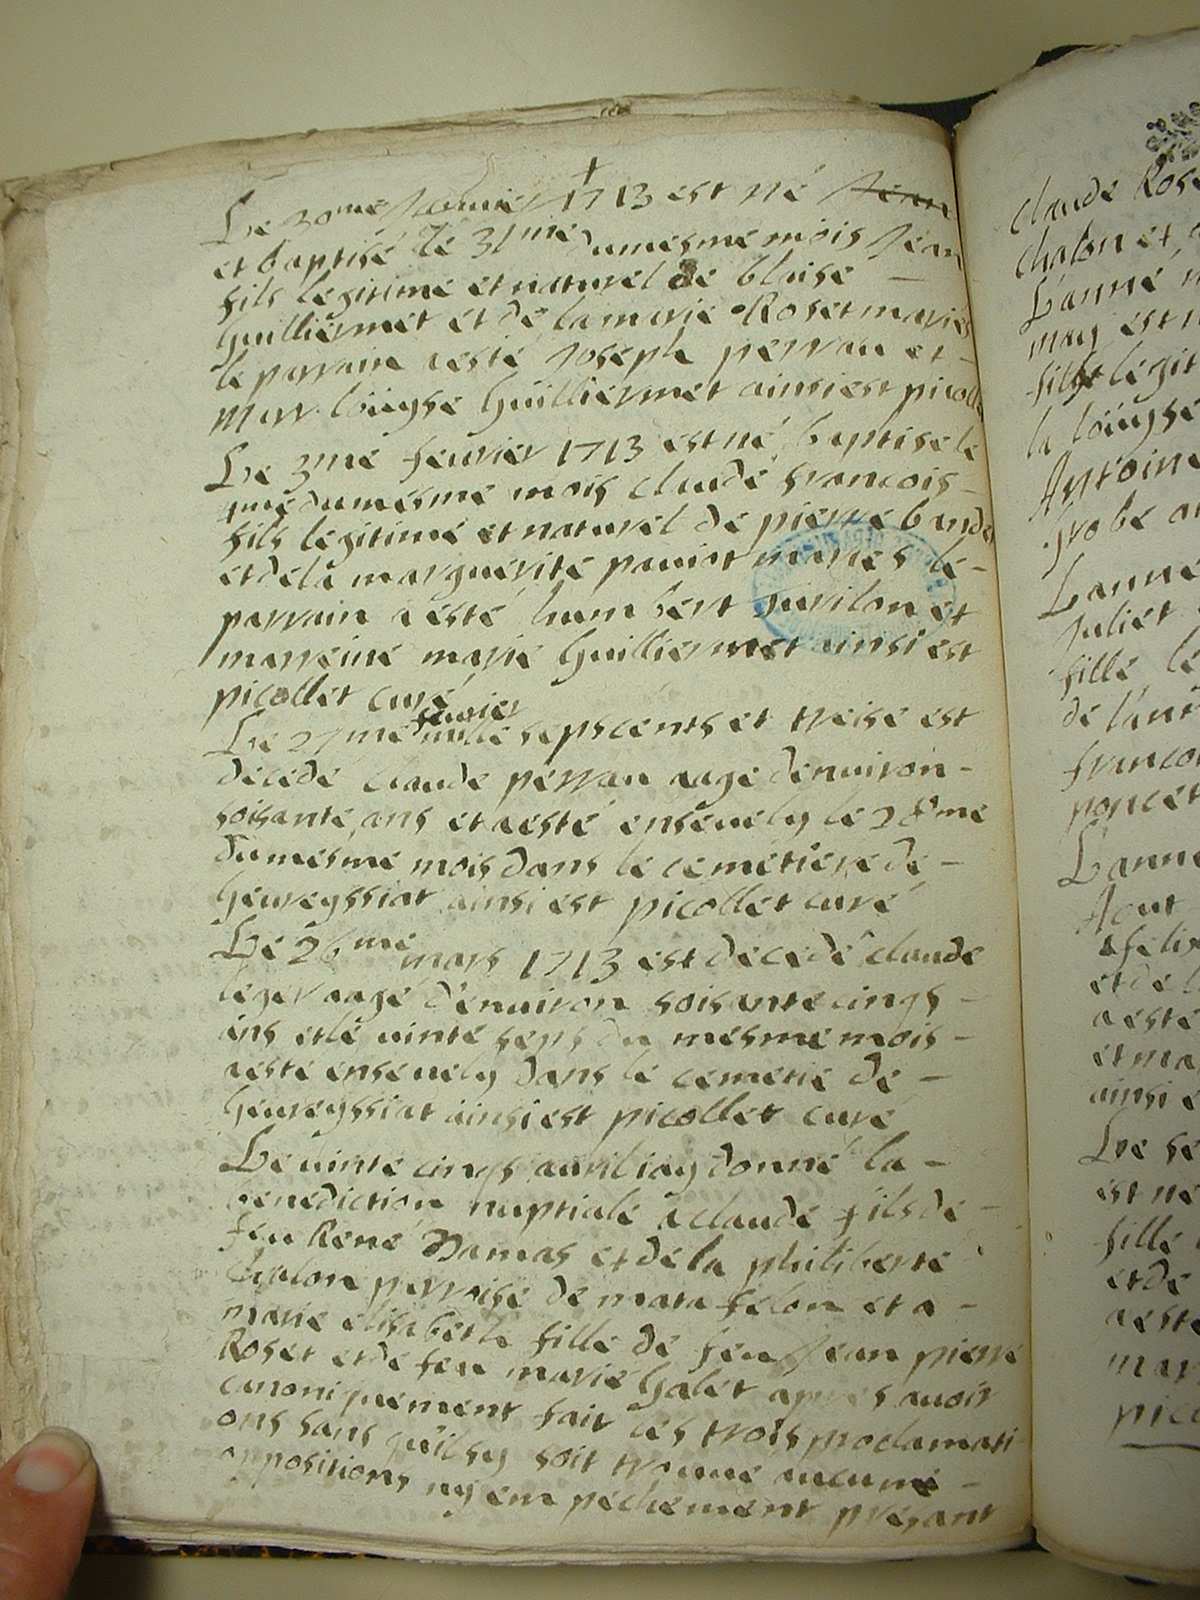 Le 30me Januier 1713 est né Jean
et baptisé le 31me du mesme mois Jean
fils legitime et naturel de blaise
Guilliermet et de la marie Roset maries
le parrain a esté Joseph perrau et
Marr. loüeyse Guilliermet ainsi est picollet
Le 3me feurier 1713 est né baptise le
4me du mesme mois claude francois
fils legitimé et naturel de pierre bande
et de la marguerite paniot maries le
parrain a esté humbert surilon et
marreine marie Guilliermet ainsi est
picollet curé
feurier
Le 27me mille sepscents et treise est
décédé claude perrau aage denuiron
soisante ans et a esté enseuely le 28me
du mesme mois dans le cemetiere de
heureyssiat ainsi est picollet curé
Le 26me mars 1713 est décedé claude
leger aagé d'enuiron soisante cings
ans et le uinte seps du mesme mois
a esté enseuely dans le cemetie de
heureyssiat ainsi est picollet curé
Le uinte cings auril iay donné la
benediction nuptiale a claude fils de
feu René Damas et de la philiberte
Chalon parroise de matafelon et a
marie elisabeth fille de feu Jean pierre
Roset et de feu marie Galet apres auoir
canoniquement fait les trois proclamati
ons sans quilsy soit trouué aucune
oppositions ny empéchement présant
claude Rose
chalon et
Lanné
may est n
fille légit
la loüeyse
Antoine
Lanné
Juliet
fille le
de
francoi
poncet
Lanne
Aout
felix
et de l
a esté
et ma
ainsi e
Le se
est né
fille
et de
a esté
mar
pico